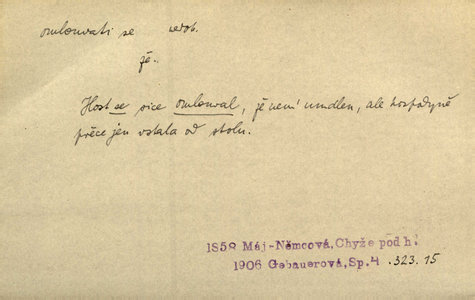 omlouvati se nedok.
že..
Host se sice omlouval, že není umdlen, ale hospodyně
přece jen vstala od stolu.
1859 Máj-Němcová, Chyže pod h.
1906 Gebauerová, Sp. 4 .323.15